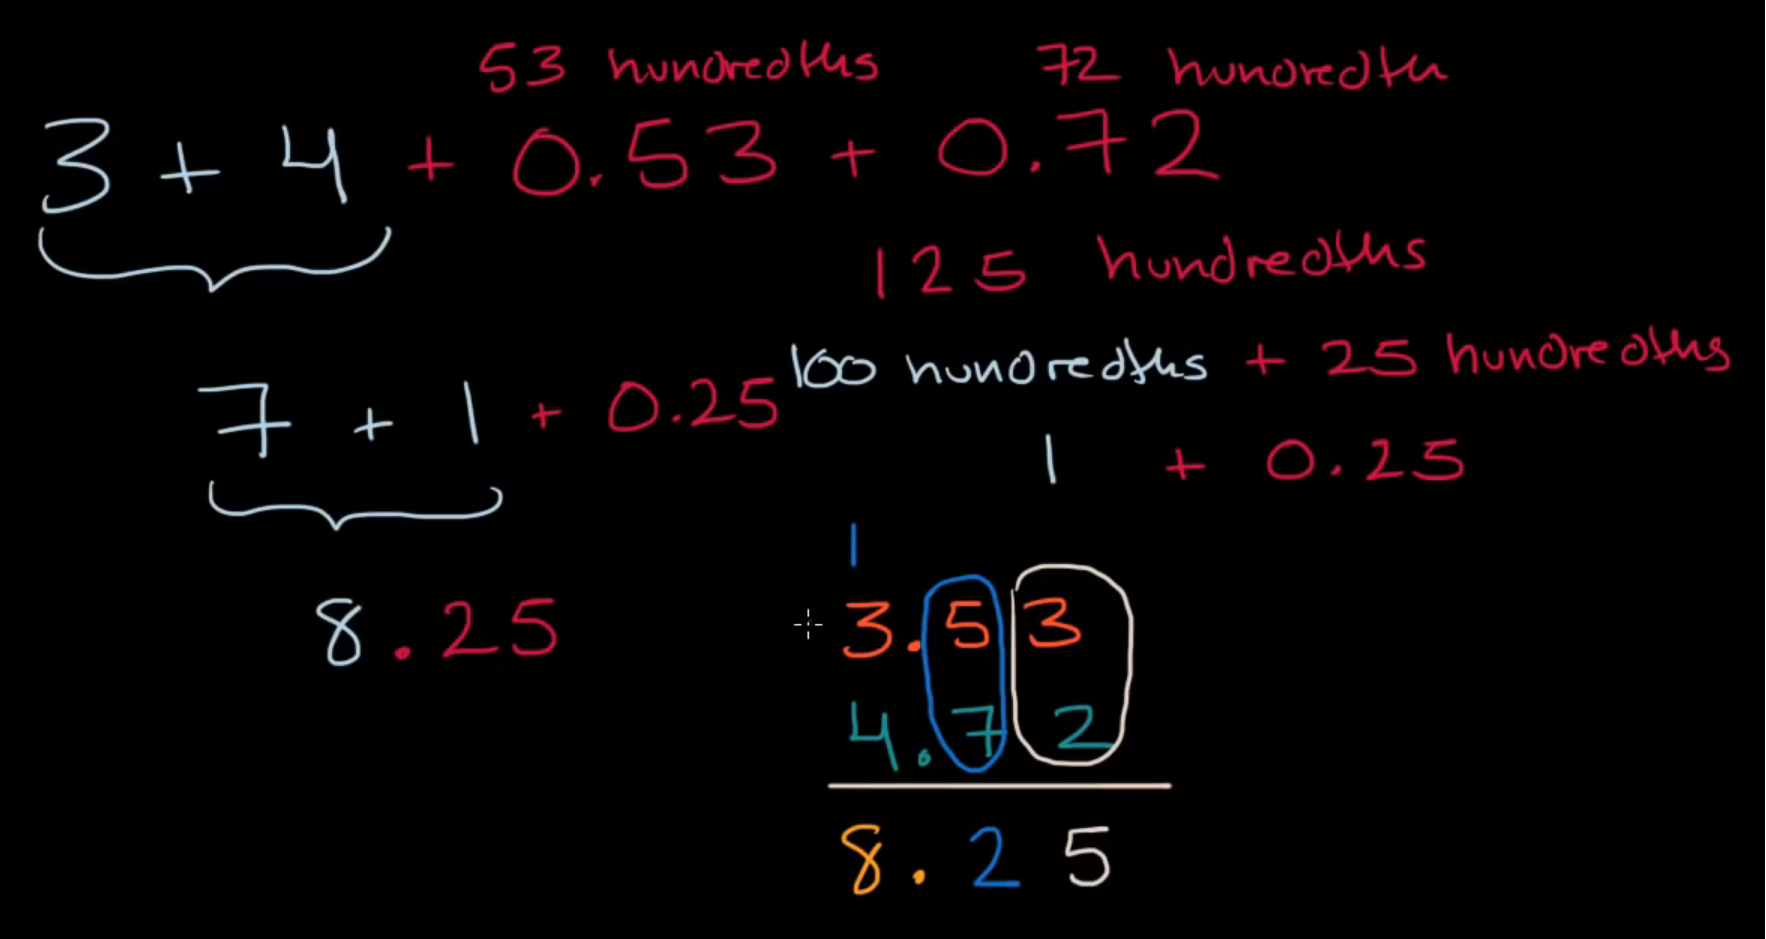 53 hundredths 72 hundredth
3 + 4 + 0.53 + 0.72
125 hundredths
100 hundredths + 25 hundredths
7 + 1 + 0.25
1 + 0.25
1
3.53
8.25
4.72
8.25